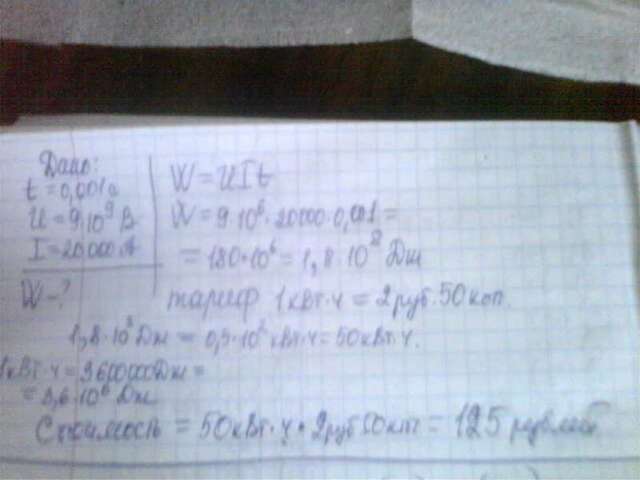 Дано:
t = 0,001 с
U = 9·10⁹ В
I = 20000 А
W - ?
W = UIt
W = 9·10⁶·20000·0,001 =
= 180·10⁶ = 1,8·10⁸ Дж
тариф 1кВт·ч = 2руб.50коп.
1,8·10⁸ Дж = 0,5·10² кВт·ч = 50кВт·ч.
1кВт·ч = 3600000Дж =
= 3,6·10⁶ Дж
Стоимость = 50кВт·ч · 2руб50коп = 125 рублей